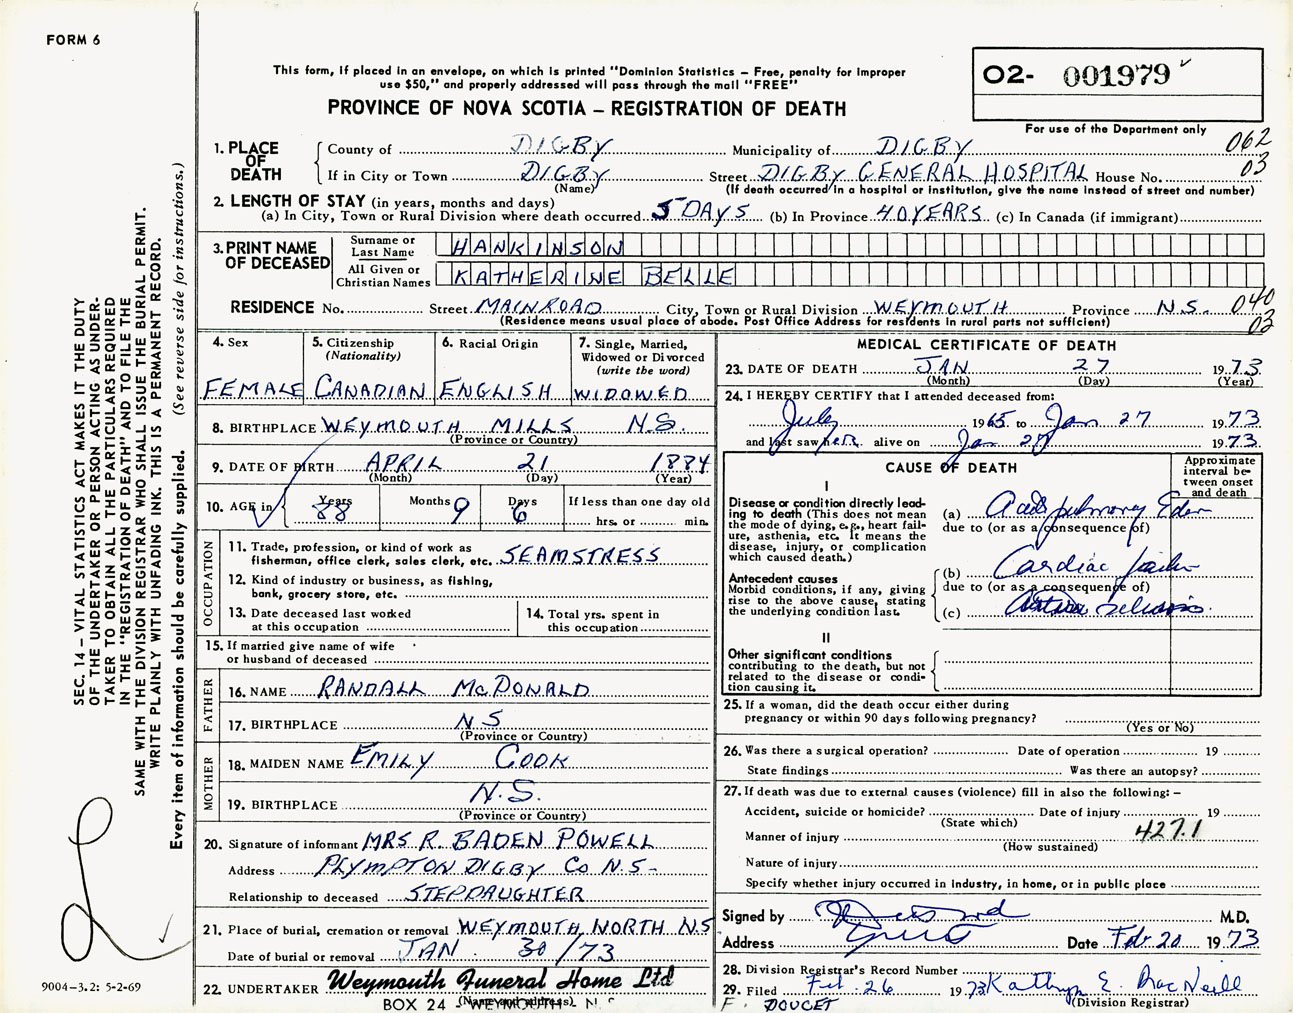 FORM 6
This form, if placed in an envelope, on which is printed "Dominion Statistics – Free, penalty for improper
use $50," and properly addressed will pass through the mail "FREE"
PROVINCE OF NOVA SCOTIA – REGISTRATION OF DEATH
O2- 001979
For use of the Department only
062
03
1. PLACE OF DEATH
County of DIGBY Municipality of DIGBY
If in City or Town DIGBY Street DIGBY GENERAL HOSPITAL House No.
(Name) (If death occurred in a hospital or institution, give the name instead of street and number)
2. LENGTH OF STAY (in years, months and days)
(a) In City, Town or Rural Division where death occurred 5 DAYS (b) In Province 40 YEARS (c) In Canada (if immigrant)
3. PRINT NAME OF DECEASED
Surname or Last Name HANKINSON
All Given or Christian Names KATHERINE BELLE
RESIDENCE No. Street MAIN ROAD City, Town or Rural Division WEYMOUTH Province N.S. 040
(Residence means usual place of abode. Post Office Address for residents in rural parts not sufficient) 02
4. Sex FEMALE
5. Citizenship (Nationality) CANADIAN
6. Racial Origin ENGLISH
7. Single, Married, Widowed or Divorced (write the word) WIDOWED
8. BIRTHPLACE WEYMOUTH MILLS N.S.
(Province or Country)
9. DATE OF BIRTH APRIL 21 1884
(Month) (Day) (Year)
10. AGE in Years 88 Months 9 Days 6 If less than one day old
hrs. or min.
OCCUPATION
11. Trade, profession, or kind of work as
fisherman, office clerk, sales clerk, etc. SEAMSTRESS
12. Kind of industry or business, as fishing,
bank, grocery store, etc.
13. Date deceased last worked
at this occupation
14. Total yrs. spent in
this occupation
15. If married give name of wife
or husband of deceased
FATHER
16. NAME RANDALL McDONALD
17. BIRTHPLACE N.S
(Province or Country)
MOTHER
18. MAIDEN NAME EMILY COOK
19. BIRTHPLACE N.S.
(Province or Country)
20. Signature of informant MRS R. BADEN POWELL
Address PLYMPTON DIGBY Co N.S-
Relationship to deceased STEPDAUGHTER
21. Place of burial, cremation or removal WEYMOUTH NORTH N.S
Date of burial or removal JAN. 30/73
22. UNDERTAKER Weymouth Funeral Home Ltd
(Name and address)
BOX 24 - WEYMOUTH - N.S
MEDICAL CERTIFICATE OF DEATH
23. DATE OF DEATH JAN 27 1973
(Month) (Day) (Year)
24. I HEREBY CERTIFY that I attended deceased from:
July 1965 to Jan 27 1973
and last saw her alive on Jan 27 1973
CAUSE OF DEATH
Approximate interval between onset and death
I
Disease or condition directly lead-
ing to death (This does not mean
the mode of dying, e.g., heart fail-
ure, asthenia, etc. It means the
disease, injury, or complication
which caused death.)
(a) pulmonary
due to (or as a consequence of)
Antecedent causes
Morbid conditions, if any, giving
rise to the above cause, stating
the underlying condition last.
(b) Cardiac failure
due to (or as a consequence of)
(c)
II
Other significant conditions
contributing to the death, but not
related to the disease or condi-
tion causing it.
25. If a woman, did the death occur either during
pregnancy or within 90 days following pregnancy?
(Yes or No)
26. Was there a surgical operation? Date of operation 19
State findings Was there an autopsy?
27. If death was due to external causes (violence) fill in also the following: –
Accident, suicide or homicide? Date of injury 19
(State which)
427.1
Manner of injury
(How sustained)
Nature of injury
Specify whether injury occurred in industry, in home, or in public place
Signed by M.D.
Address Date Feb 20 1973
28. Division Registrar's Record Number
29. Filed Feb. 26 1973 Kathryn E. MacNeill
(Division Registrar)
F. DOUCET
SEC. 14 – VITAL STATISTICS ACT MAKES IT THE DUTY
OF THE UNDERTAKER OR PERSON ACTING AS UNDER-
TAKER TO OBTAIN ALL THE PARTICULARS REQUIRED
IN THE "REGISTRATION OF DEATH" AND TO FILE THE
SAME WITH THE DIVISION REGISTRAR WHO SHALL ISSUE THE BURIAL PERMIT.
WRITE PLAINLY WITH UNFADING INK. THIS IS A PERMANENT RECORD.
Every item of information should be carefully supplied. (See reverse side for instructions.)
9004-3.2: 5-2-69